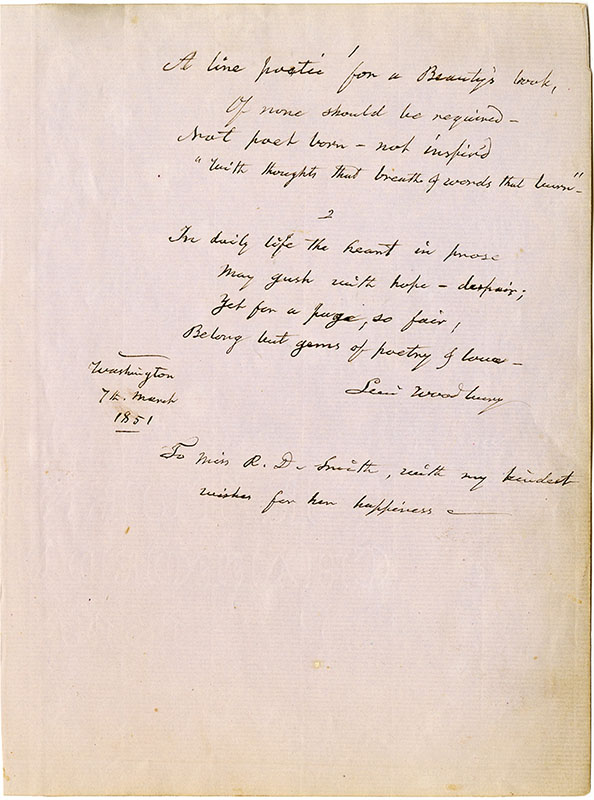 1
A line poetic for a Beauty's book,
Of none should be required –
Not poet born – not inspir'd
"With thoughts that breath & words that burn" –
2
In daily life the heart in prose
May gush with hope – despair;
Yet for a page, so fair,
Belong but gems of poetry & love –
Levi Woodbury
Washington
7th. March
1851
To Miss R. D. Smith, with my kindest
wishes for her happiness –